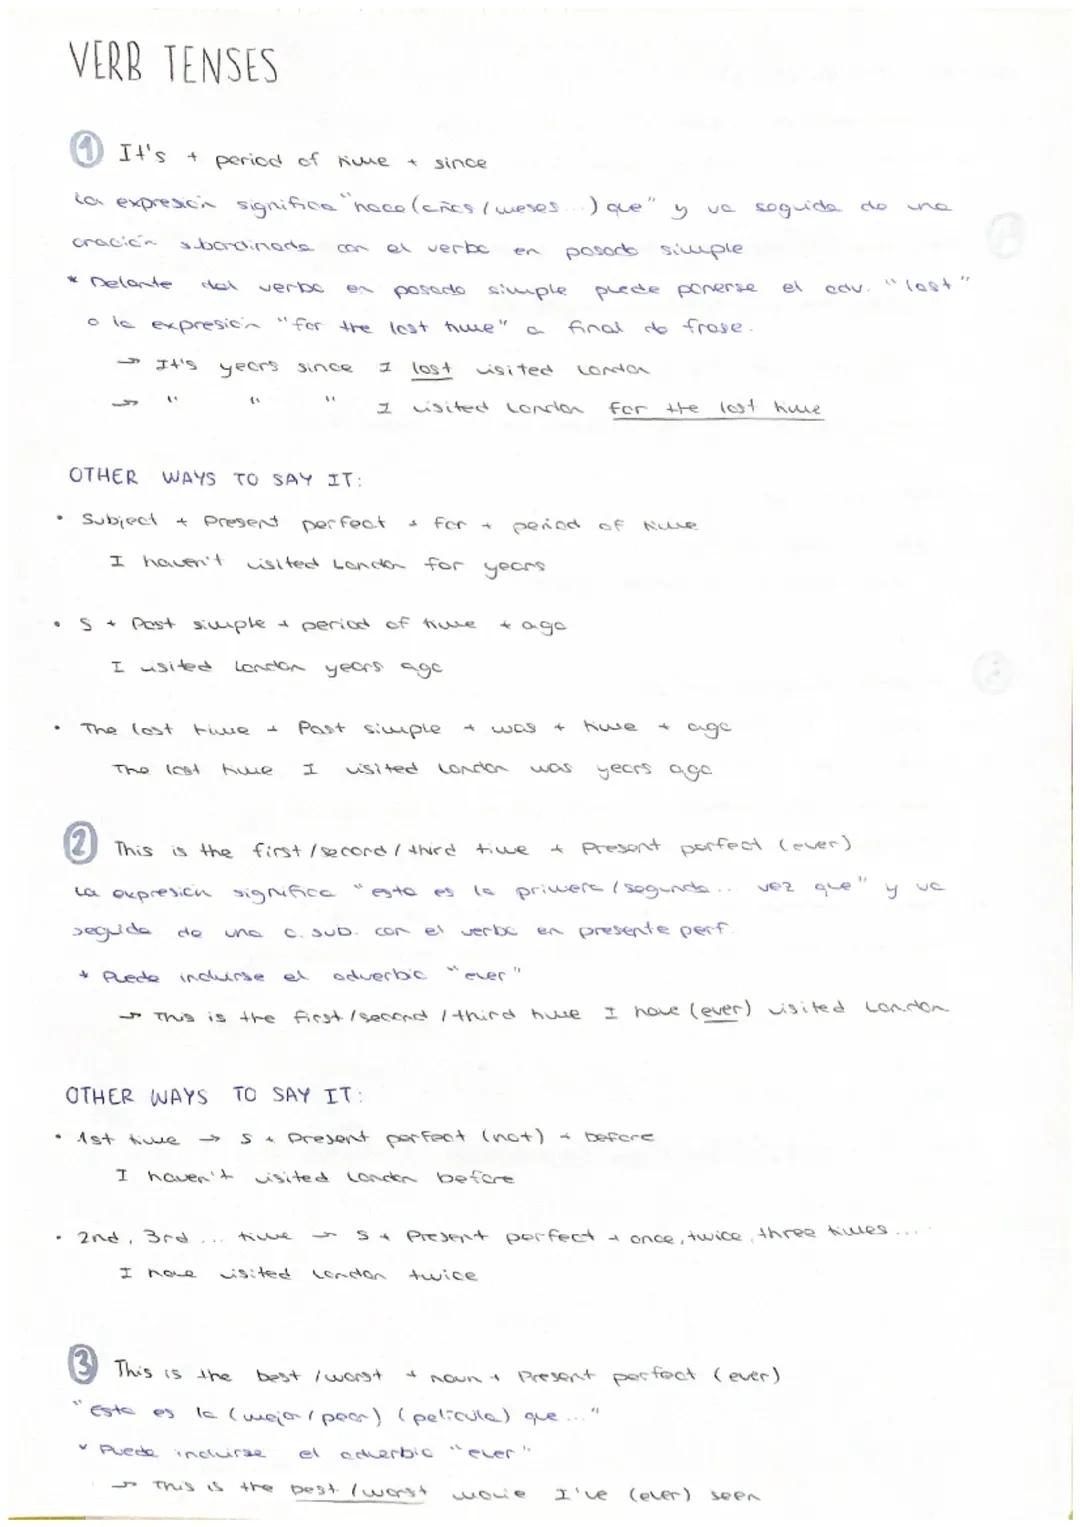 VERB TENSES
① It's + period of time + since
La expresión significa "hace (años / meses ...) que" y va seguida de una
oración subordinada con el verbo en pasado simple
* Delante del verbo en pasado simple puede ponerse el adv. "last"
o la expresión "for the last time" a final de frase.
→ It's years since I last visited London
→ " " " I visited London for the last time
OTHER WAYS TO SAY IT:
• Subject + Present perfect + for + period of time
I haven't visited London for years
• S + Past simple + period of time + ago
I visited London years ago
• The last time + Past simple + was + time + ago
The last time I visited London was years ago
② This is the first / second / third time + Present perfect (ever)
La expresión significa "esta es la primera / segunda .. vez que" y va
seguida de una o. sub. con el verbo en presente perf.
* Puede incluirse el adverbio "ever"
→ This is the first / second / third time I have (ever) visited London
OTHER WAYS TO SAY IT:
• 1st time → S + Present perfect (not) + before
I haven't visited London before
• 2nd, 3rd ... time → S + Present perfect + once, twice, three times ....
I have visited London twice
③ This is the best / worst + noun + Present perfect (ever)
"Esta es la (mejor / peor) (película) que ..."
* Puede incluirse el adverbio "ever".
→ This is the best / worst movie I've (ever) seen